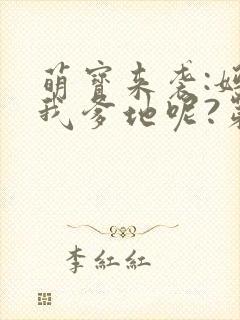 萌寶来袭:
我爹地呢?
李紅紅